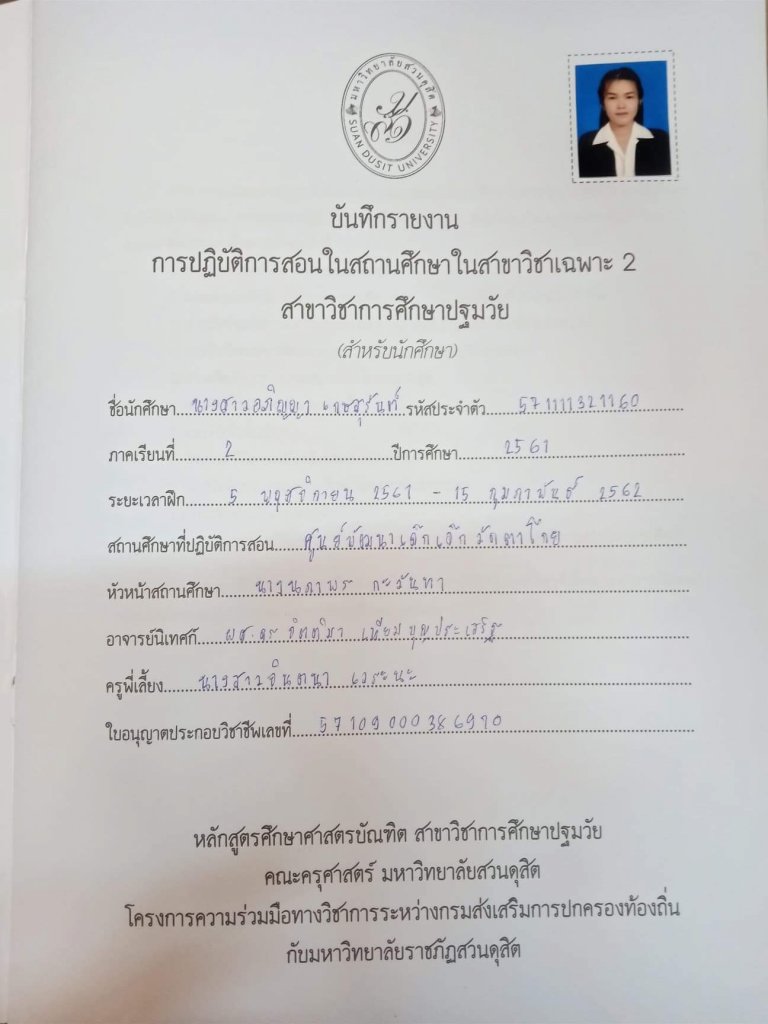 มหาวิทยาลัยสวนดุสิต
SUAN DUSIT UNIVERSITY
บันทึกรายงาน
การปฏิบัติการสอนในสถานศึกษาในสาขาวิชาเฉพาะ 2
สาขาวิชาการศึกษาปฐมวัย
(สำหรับนักศึกษา)
ชื่อนักศึกษา นางสาวอภิญญา เดชสุรันท์ รหัสประจำตัว 571111321160
ภาคเรียนที่ 2 ปีการศึกษา 2561
ระยะเวลาฝึก 5 พฤศจิกายน 2561 - 15 กุมภาพันธ์ 2562
สถานศึกษาที่ปฏิบัติการสอน ศูนย์พัฒนาเด็กเล็ก วัดตาโกย
หัวหน้าสถานศึกษา นางนภาพร กะวันทา
อาจารย์นิเทศก์ ผศ.ดร จิตติมา เทียมบุญประเสริฐ
ครูพี่เลี้ยง นางสาวจินตนา
ใบอนุญาตประกอบวิชาชีพเลขที่ 57109000386970
หลักสูตรศึกษาศาสตรบัณฑิต สาขาวิชาการศึกษาปฐมวัย
คณะครุศาสตร์ มหาวิทยาลัยสวนดุสิต
โครงการความร่วมมือทางวิชาการระหว่างกรมส่งเสริมการปกครองท้องถิ่น
กับมหาวิทยาลัยราชภัฏสวนดุสิต